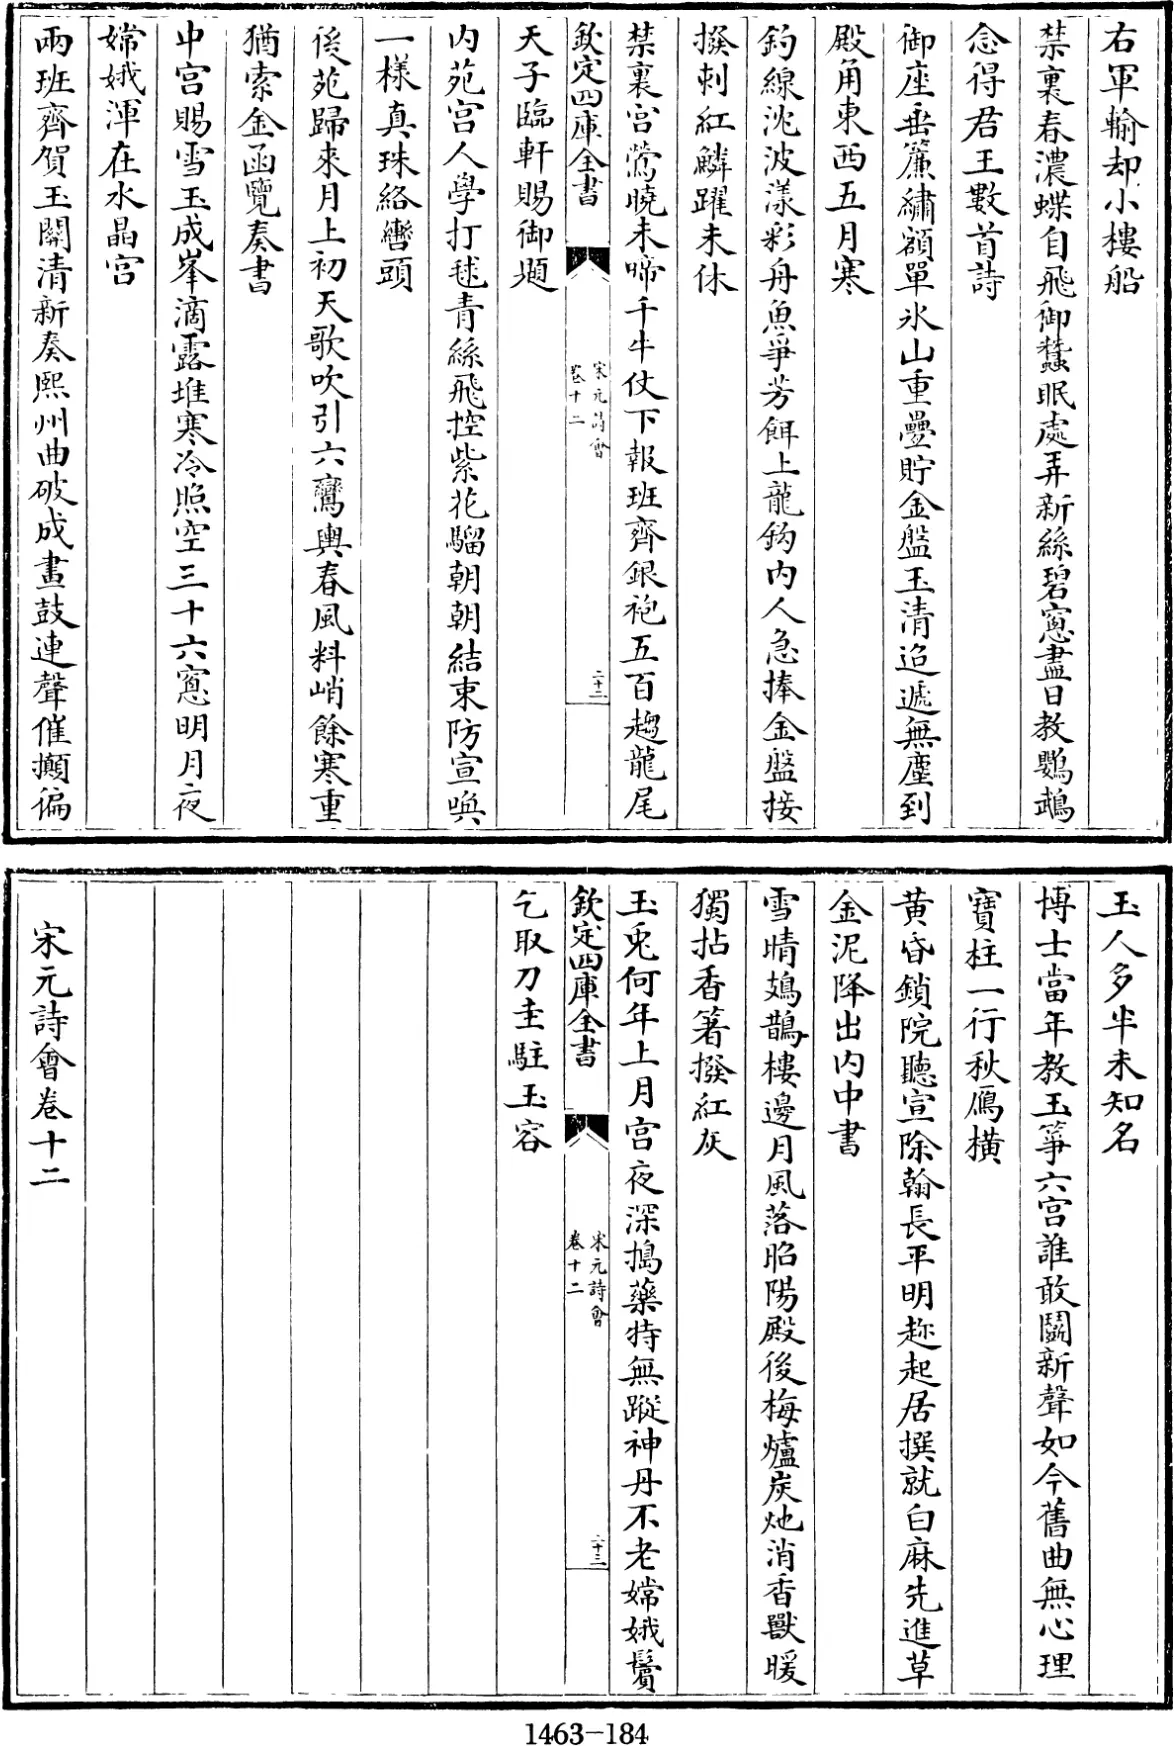 右軍輸却小樓船
禁裏春濃蝶自飛御蠶眠處弄新絲碧窻盡日教鸚鵡
念得君王數首詩
御座垂簾繡額單氷山重疊貯金盤玉清迢遞無塵到
殿角東西五月寒
釣線沈波漾彩舟魚爭芳餌上龍鈎内人急捧金盤接
撥刺紅鱗躍未休
禁裏宫鶯曉未啼千牛仗下報班齊銀袍五百趨龍尾
欽定四庫全書
宋元詩會
卷十二
二十二
天子臨軒賜御題
内苑宫人學打毬青絲飛控紫花騮朝朝結束防宣喚
一樣真珠絡轡頭
後苑歸來月上初天歌吹引六鸞輿春風料峭餘寒重
猶索金函覽奏書
中宫賜雪玉成峯滴露堆寒冷照空三十六窻明月夜
嫦娥渾在水晶宫
兩班齊賀玉關清新奏熙州曲破成畫鼓連聲催攧徧
玉人多半未知名
博士當年教玉箏六宫誰敢鬬新聲如今舊曲無心理
寶柱一行秋鴈横
黄昏鎖院聽宣除翰長平明趂起居撰就白麻先進草
金泥降出内中書
雪晴鳷鵲樓邊月風落昭陽殿後梅爐炭灺消香獸暖
獨拈香箸撥紅灰
玉兎何年上月宫夜深搗藥特無蹤神丹不老嫦娥鬢
欽定四庫全書
宋元詩會
卷十二
二十三
乞取刀圭駐玉容
宋元詩會卷十二
1463-184